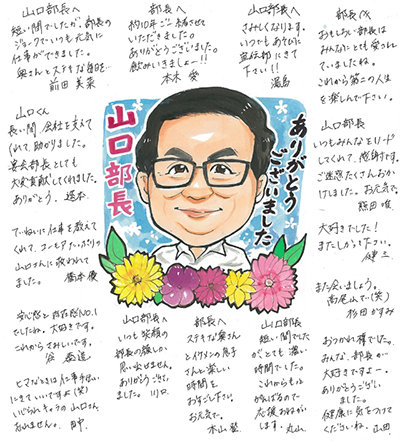 部長へ
短い間でしたが、部長の
ジョークでいつも元気に
仕事ができました。
奥さんとステキな日を…
前田 美菜
部長へ
約10年ご一緒させて
いただきました。
ありがとうございました。
飲みいきましょー!!
本木 愛
山口部長へ
さみしくなります。
いつでもあそびに
宣伝部にきて
下さい!!
湯島
部長へ
おもしろい部長は
みんなにとても愛され
ていましたね。
これから第二の人生
を楽しんで下さい。
山口くん
長い間、会社を支えて
くれて、助かりました。
宴会部長としても
大変貢献してくれました。
ありがとう。
山口部長
いつもみんなをリード
してくれて、感謝です。
ご迷惑たくさんおか
けしました。お元気で。
熊田 唯
山口部長
ありがとう
ございました
ていねいに仕事を教えて
くれて、
山口さんに救われて
ました。
橋本 優
大好きでした!
またしかって下さい。
健三
また会いましょう。
高尾山で(笑)
杉田 かすみ
安心感と存在感NO.1
でしたね。大好きです。
これからさみしいです。
谷
ヒマなときは仕事手伝い
にきていいですよ(笑)
いじられキャラの山口さん
忘れません。
田中
山口部長へ
いつも笑顔の
部長の顔しか
思い出せません。
ありがとうござい
ました。
川口
部長へ
ステキな奥さん
とイケメンの息子
さんと楽しい
時間を
おすごし下さい。
お元気で。
木山
山口部長
短い間でした
が、とても濃い
時間でした。
これからもっと
がんばるので
応援おねがい
します。
丸山
おつかれ様でした。
みんな、部長が
大好きですよー。
ありがとうござい
ました。
健康に気をつけて
くださいね。
山田